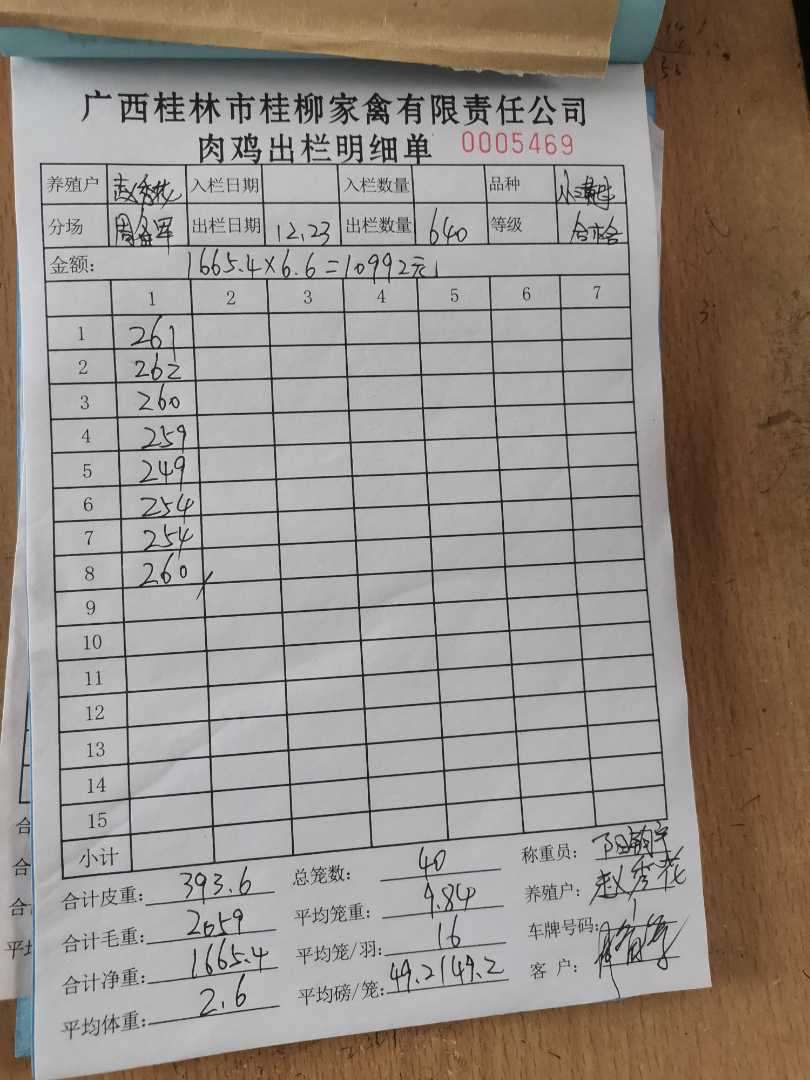 广西桂林市桂柳家禽有限责任公司
肉鸡出栏明细单 0005469
养殖户 赵秀花 入栏日期 入栏数量 品种
分场 出栏日期 12.23 出栏数量 640 等级 合格
金额: 1665.4×6.6=10992元
1 2 3 4 5 6 7
1 261
2 262
3 260
4 259
5 249
6 254
7 254
8 260
9
10
11
12
13
14
15
小计
合计皮重: 393.6 总笼数: 40 称重员:
合计毛重: 2059 平均笼重: 9.84 养殖户: 赵秀花
合计净重: 1665.4 平均笼/羽: 16 车牌号码:
平均体重: 2.6 平均磅/笼: 49.2149.2 客户: